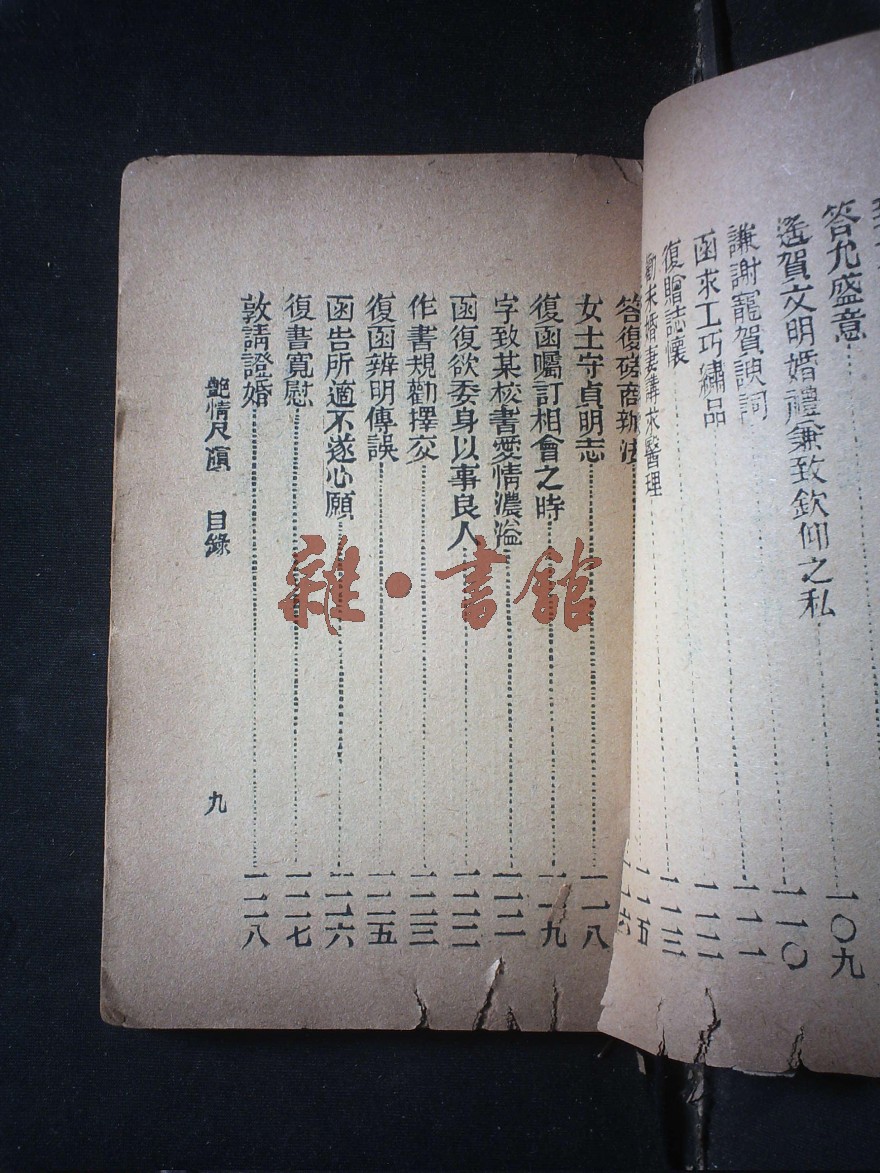 答允盛意……一〇九
遙賀文明婚禮兼致欽仰之私……一一〇
謙謝寵賀諛詞……一一一
函求工巧繡品……一一二
復贈誌懷……一一三
勸未婚妻講求醫理……一一五
答復磋商辦法……一一六
女士守貞明志……一一八
復函囑訂相會之時……一一九
字致某校書愛情濃溢……一二一
函復欲委身以事良人……一二二
作書規勸擇交……一二三
復函辨明傳誤……一二五
函告所適不遂心願……一二六
復書寬慰……一二七
敦請證婚……一二八
艷情尺牘 目錄 九
雜·書館